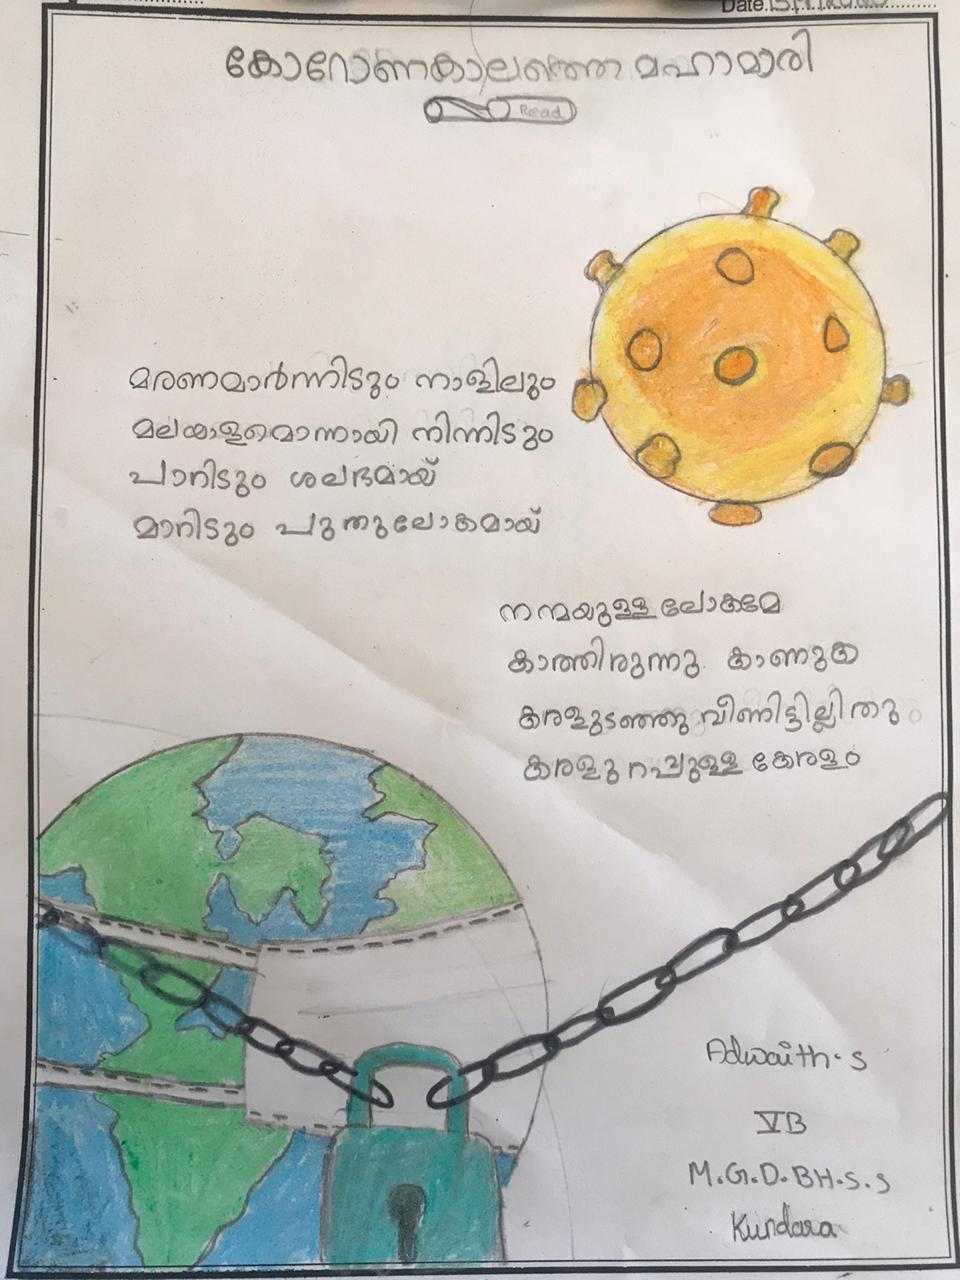 കോറോണകാലത്തെ മഹാമാരി
Read
മരണമാർന്നിടും നാളിലും
മലയാളമൊന്നായി നിന്നിടും
പാറിടും ശലഭമായ്
മാറിടും പുതുലോകമായ്
നന്മയുള്ള ലോകമേ
കാത്തിരുന്നു കാണുക
കരളുടഞ്ഞു വീണിട്ടില്ലിതു
കരളുറപ്പുള്ള കേരളം
Adwaith.S
VB
M.G.D.BH.S.S
Kundara